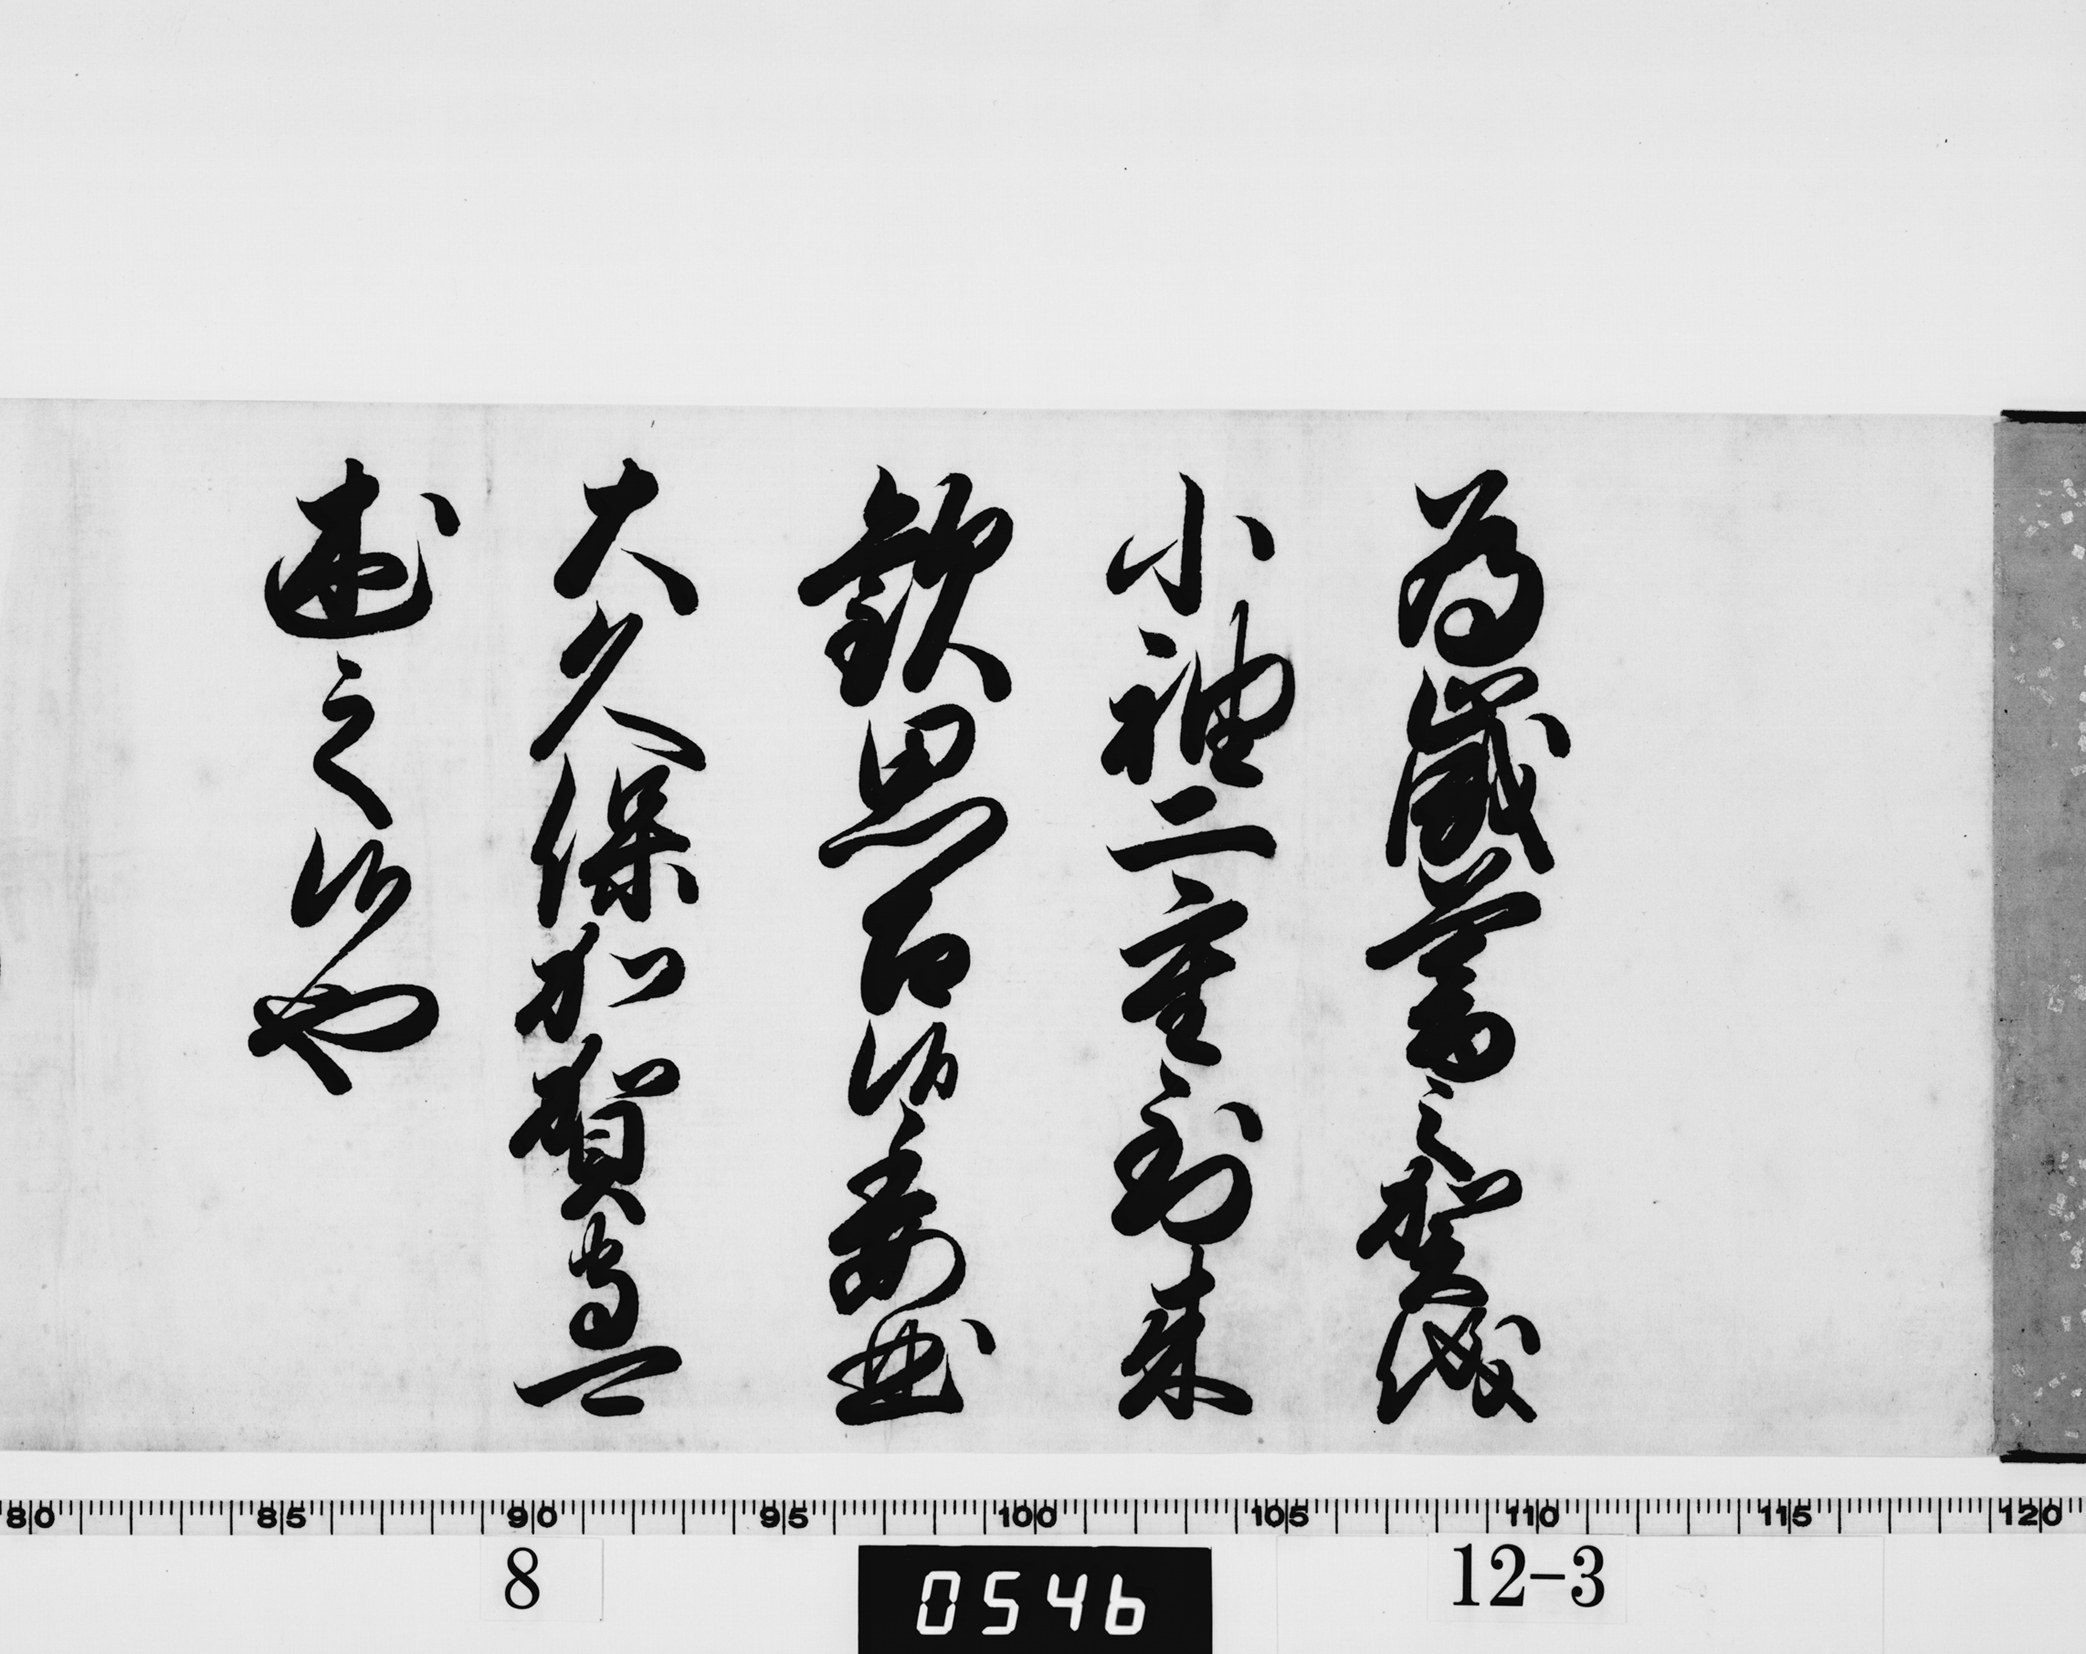 為歳暮之祝儀
小袖二重到来
歓思召候委曲
大久保加賀守可
述之候也
80 85 90 95 100 105 110 115 120
8
0546
12-3